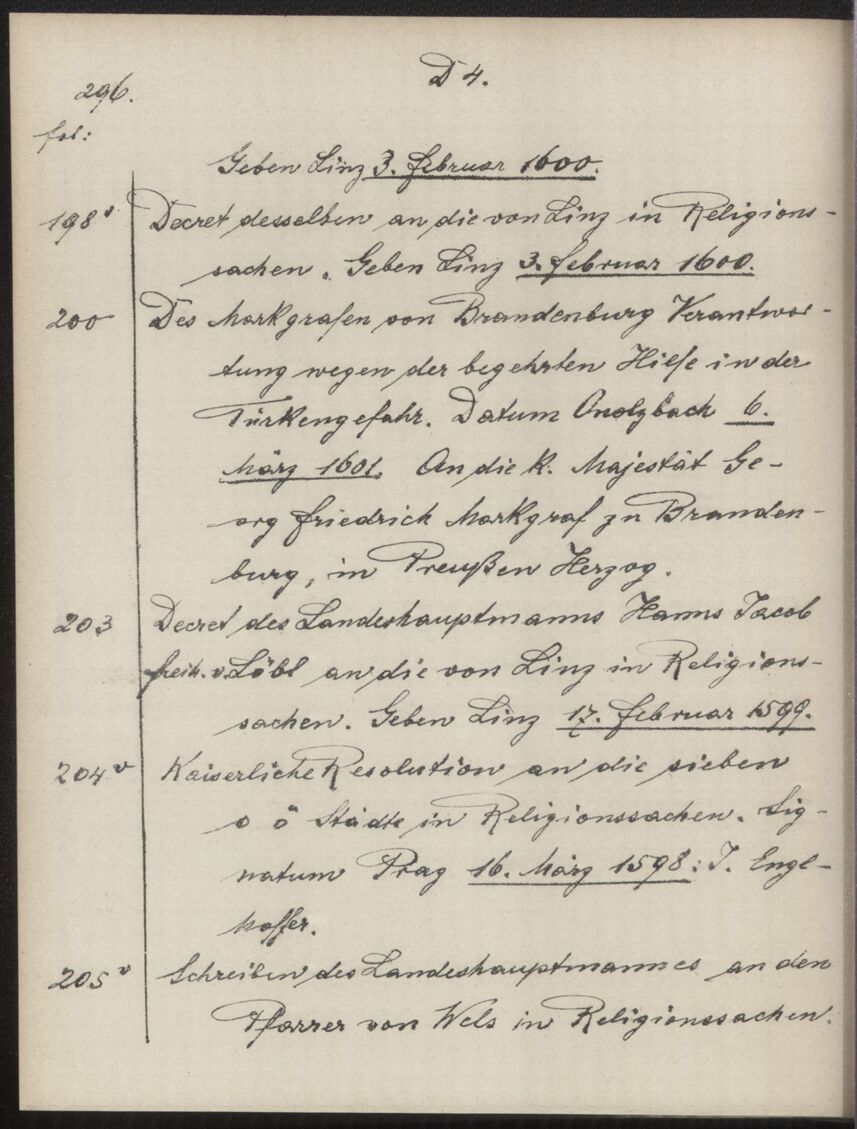 D 4.
296.
fol:
Geben Linz 3. Februar 1600.
198v Decret desselben an die von Linz in Religions-
sachen. Geben Linz 3. Februar 1600.
200 Des Markgrafen von Brandenburg Verantwor-
tung wegen der begehrten Hilfe in der
Türkengefahr. Datum Onolzbach 6.
März 1601. An die k. Majestät Ge-
org Friedrich Markgraf zu Branden-
burg, in Preußen Herzog.
203 Decret des Landeshauptmanns Hanns Jacob
Freih. v. Löbl an die von Linz in Religions-
sachen. Geben Linz 17. Februar 1599.
204v Kaiserliche Resolution an die sieben
o ö Städte in Religionssachen. Sig-
natum Prag 16. März 1598: J. Engl-
hoffer.
205v Schreiben des Landeshauptmannes an den
Pfarrer von Wels in Religionssachen.